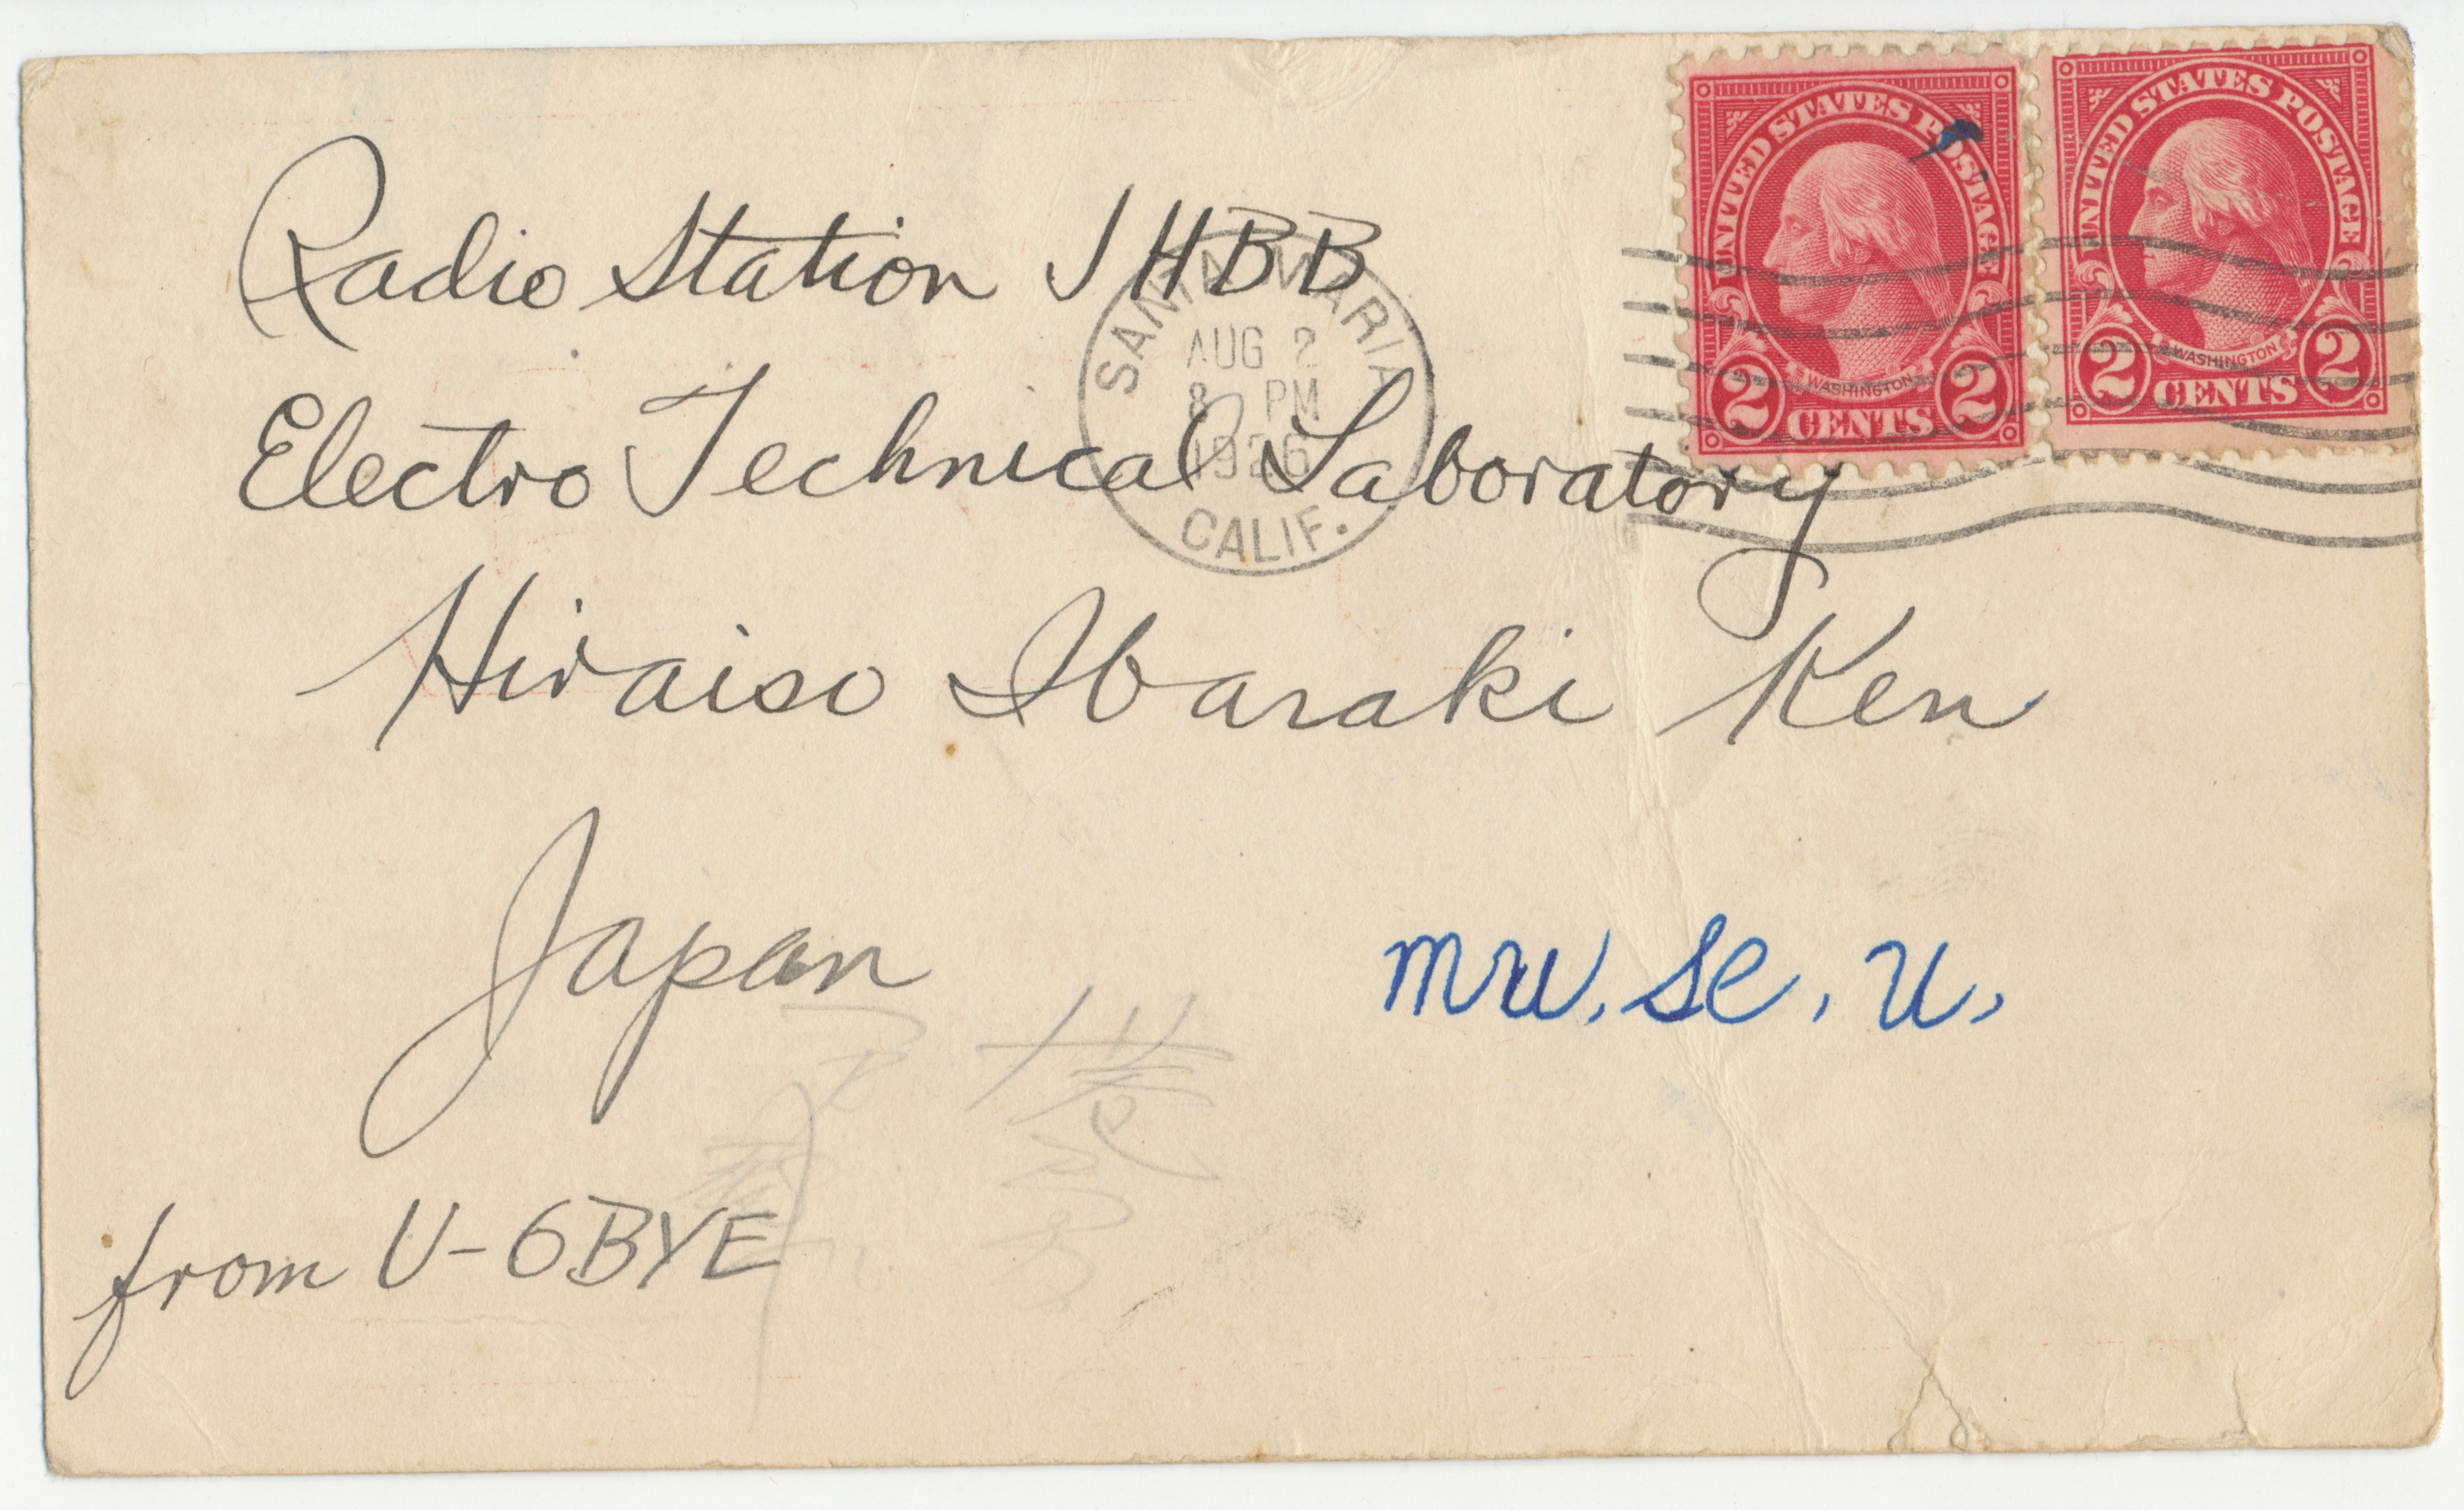 Radio Station JHBB
Electro Technical Laboratory
Hiraiso Ibaraki Ken
Japan
from U-6BYE
SANTA MARIA
AUG 2
8 PM
1926
CALIF.
UNITED STATES POSTAGE
WASHINGTON
2 CENTS 2
UNITED STATES POSTAGE
WASHINGTON
2 CENTS 2